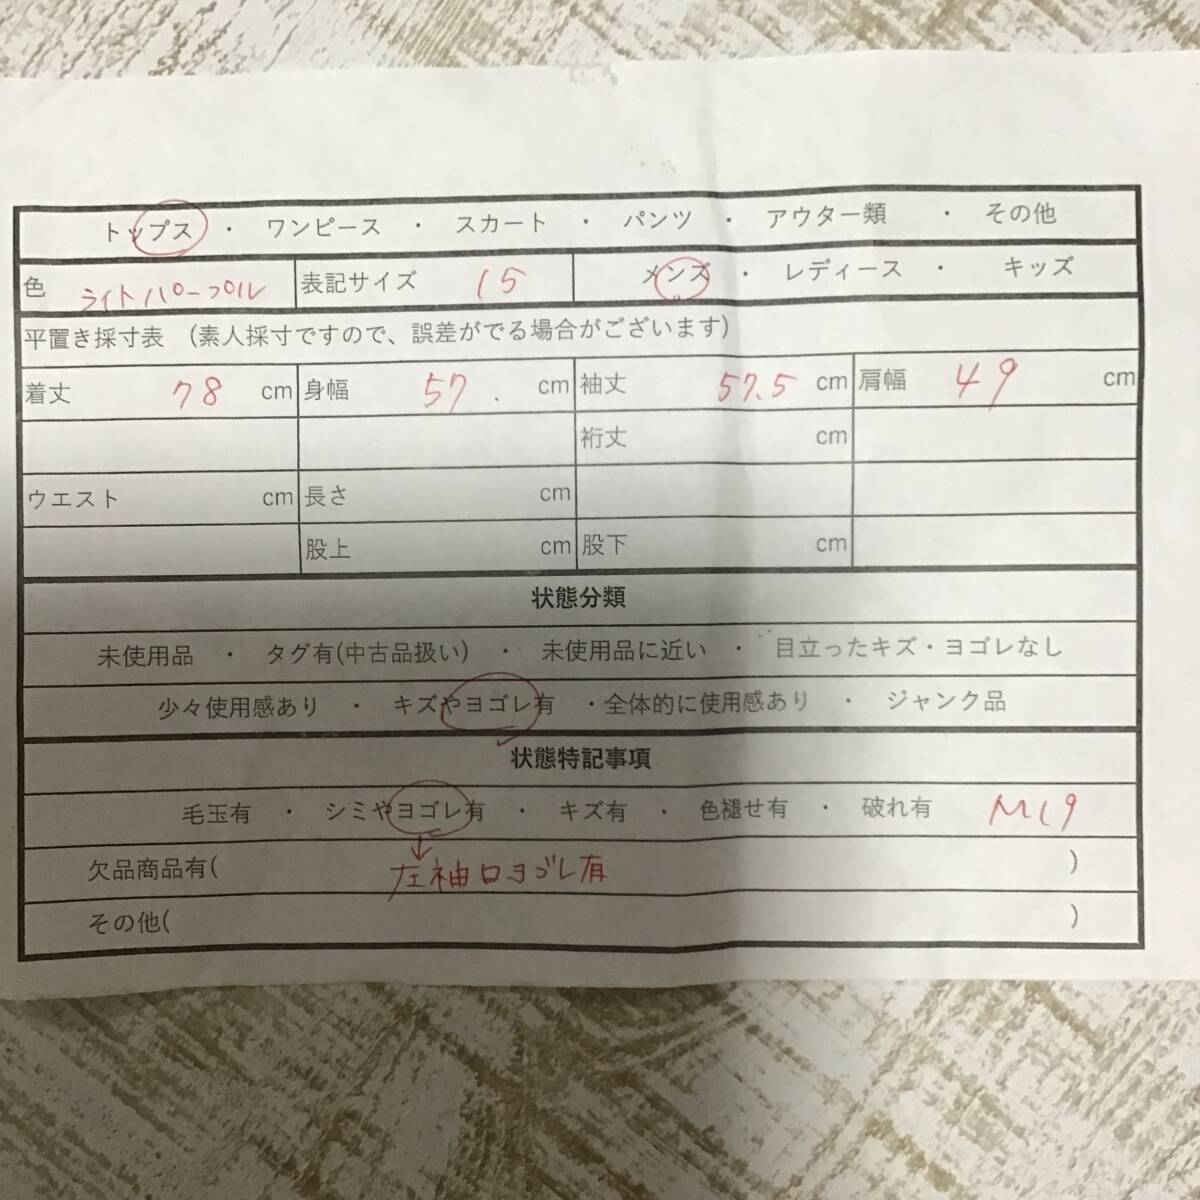 トップス ・ ワンピース ・ スカート ・ パンツ ・ アウター類 ・ その他
色 ライトパープル 表記サイズ 15 メンズ ・ レディース ・ キッズ
平置き採寸表 (素人採寸ですので、誤差がでる場合がございます)
着丈 78 cm 身幅 57. cm 袖丈 57.5 cm 肩幅 49 cm
裄丈 cm
ウエスト cm 長さ cm
股上 cm 股下 cm
状態分類
未使用品 ・ タグ有(中古品扱い) ・ 未使用品に近い ・ 目立ったキズ・ヨゴレなし
少々使用感あり ・ キズやヨゴレ有 ・全体的に使用感あり ・ ジャンク品
状態特記事項
毛玉有 ・ シミやヨゴレ有 ・ キズ有 ・ 色褪せ有 ・ 破れ有 M19
欠品商品有( 左袖口ヨゴレ有 )
その他( )